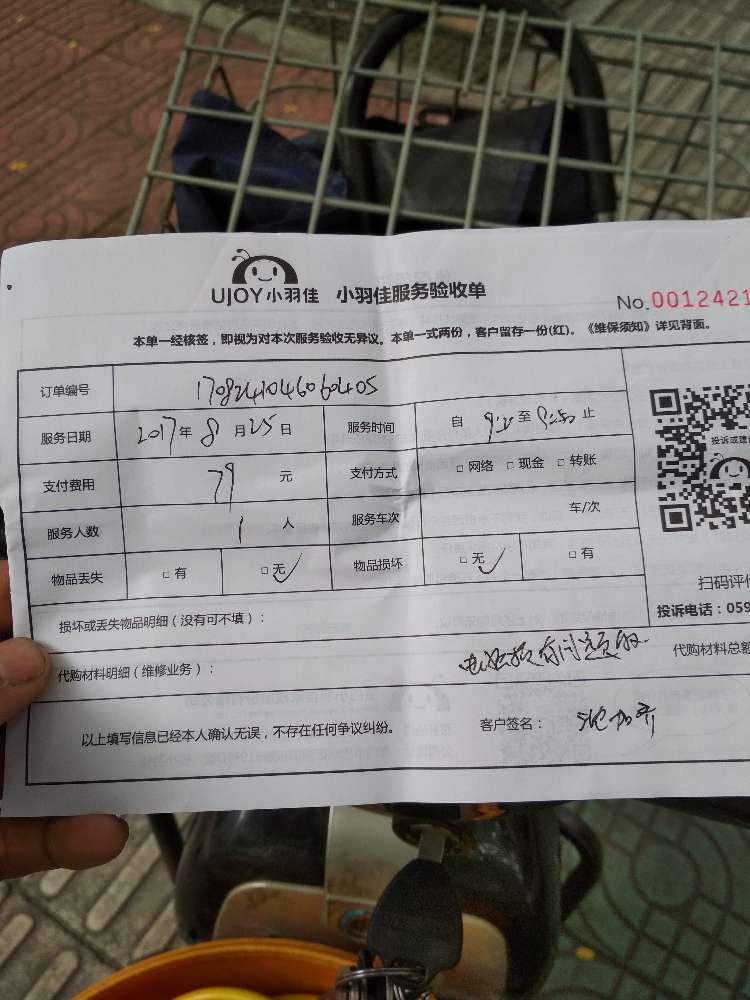 UJOY小羽佳 小羽佳服务验收单
No.0012421
本单一经核签，即视为对本次服务验收无异议。本单一式两份，客户留存一份(红)。《维保须知》详见背面。
订单编号 1708241046060405
服务日期 2017年8月25日 服务时间 自 至 止
投诉或建
支付费用 79元 支付方式 □网络 □现金 □转账
服务人数 1人 服务车次 车/次
物品丢失 □有 □无 物品损坏 □无 □有
扫码评
损坏或丢失物品明细（没有可不填）：
投诉电话：059
代购材料明细（维修业务）： 代购材料总
以上填写信息已经本人确认无误，不存在任何争议纠纷。 客户签名：